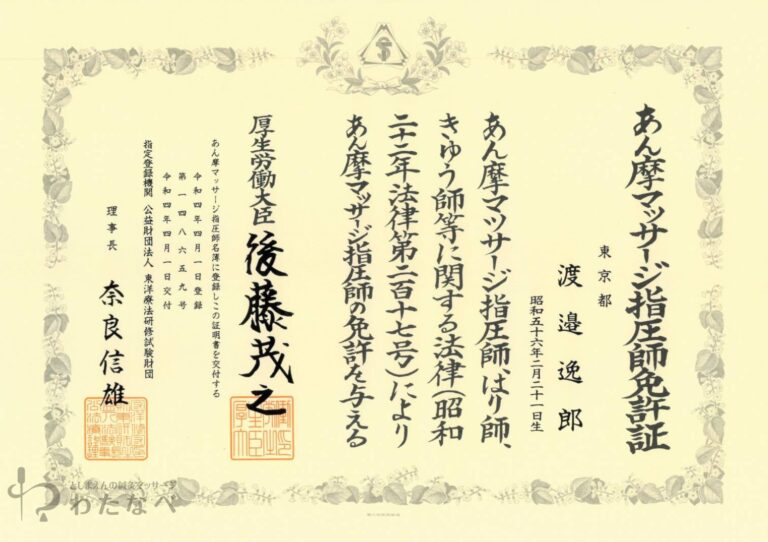 あん摩マッサージ指圧師免許証
東京都
渡邉逸郎
昭和五十六年二月二十一日生
あん摩マツサージ指圧師、はり師、
きゆう師等に関する法律（昭和
二十二年法律第二百十七号）により
あん摩マツサージ指圧師の免許を与える
厚生労働大臣 後藤茂之
あん摩マツサージ指圧師名簿に登録しこの証明書を交付する
令和四年四月一日登録
第一四八六五九号
令和四年四月一日交付
指定登録機関 公益財団法人 東洋療法研修試験財団
理事長 奈良信雄
としまえんの鍼灸マッサージ
わたなべ